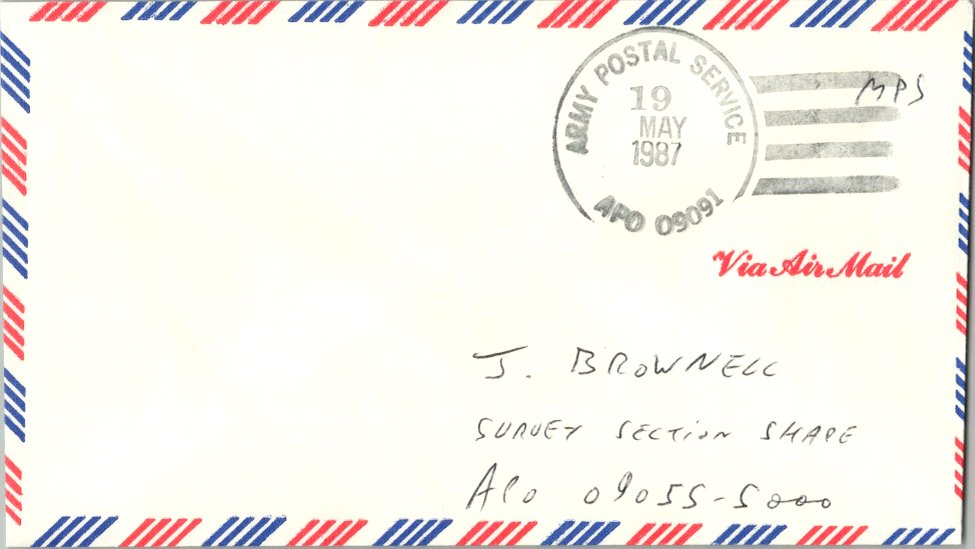 ARMY POSTAL SERVICE
19
MAY
1987
APO 09091
MPS
Via Air Mail
J. BROWNELL
SURVEY SECTION SHAPE
APO 09055-5000